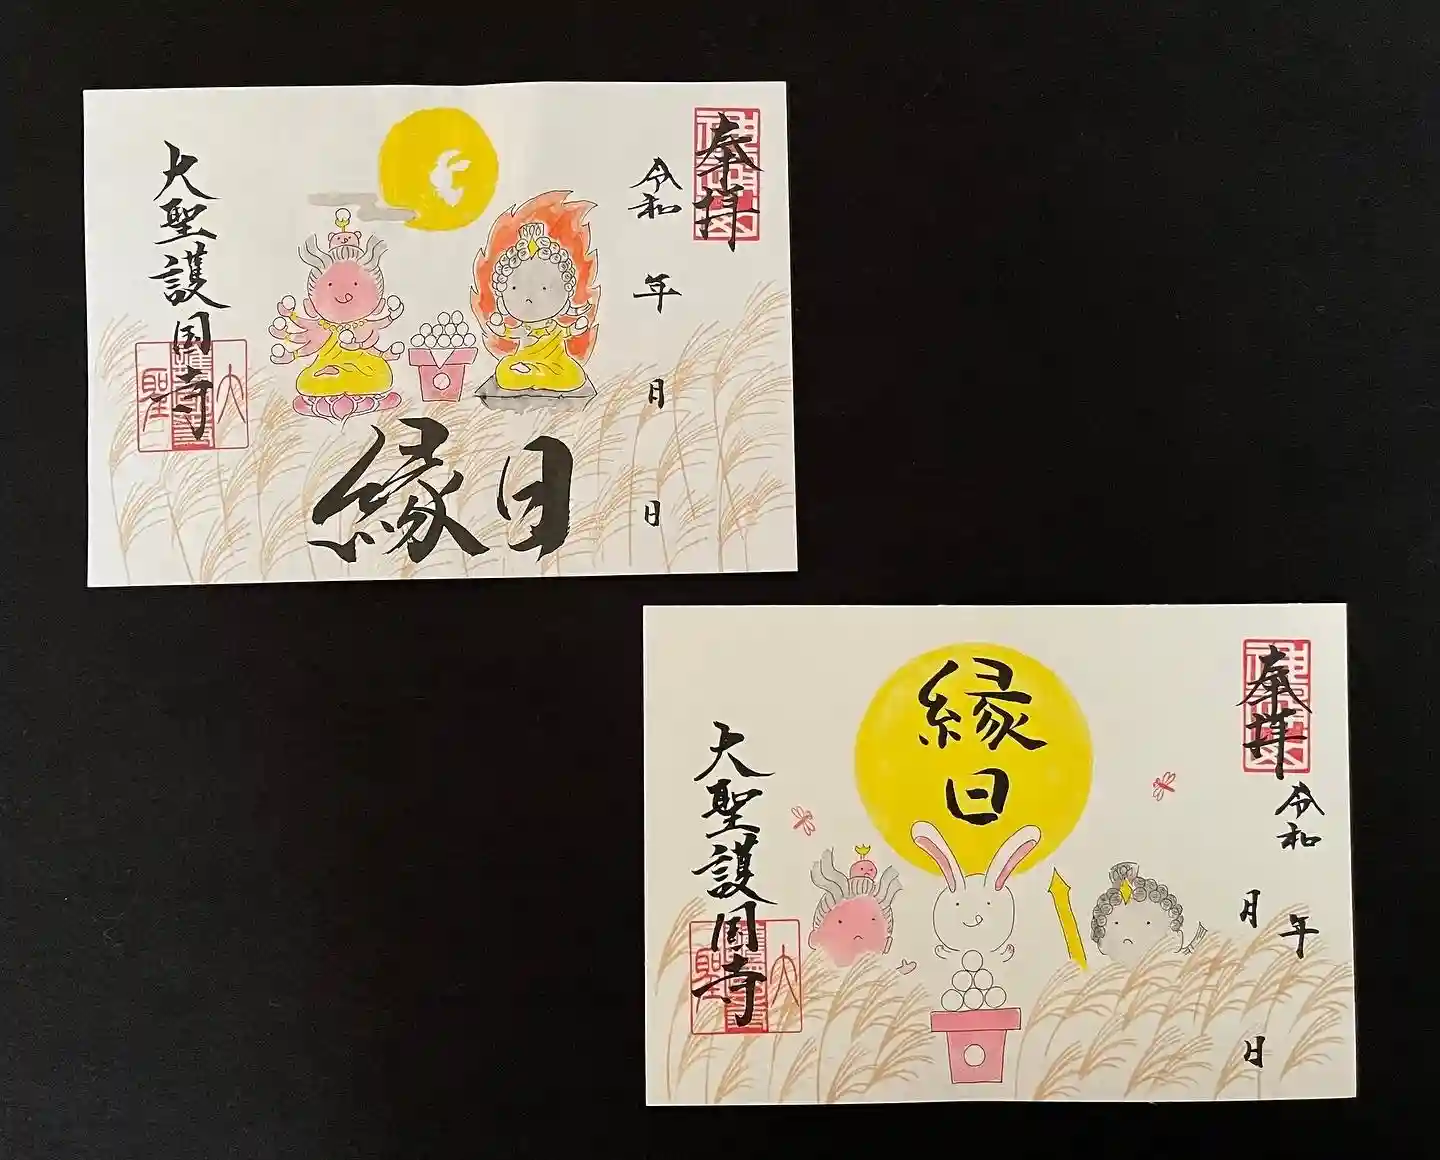 奉拝
令和 年 月 日
縁日
大聖護国寺
奉拝
令和 年
月 日
縁日
大聖護国寺